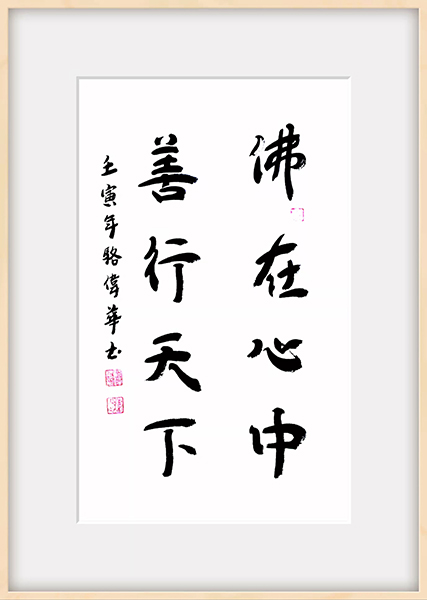 佛在心中
善行天下
壬寅年駱偉華书